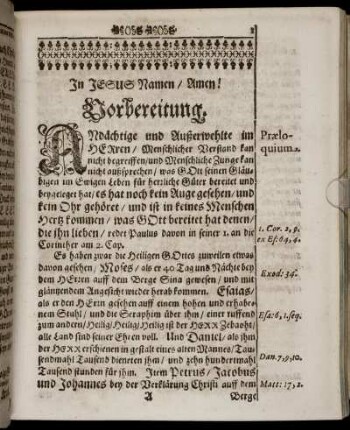 1
In JESUS Namen / Amen!
Vorbereitung.
Andächtige und Außerwehlte im
HErren / Menschlicher Verstand kan
nicht begreiffen / und Menschliche Zunge kan
nicht außsprechen / was GOtt seinen Gläu-
bigen im Ewigen Leben für herrliche Güter bereitet und
beygeleget hat / es hat noch kein Auge gesehen / und
kein Ohr gehöret / und ist in keines Menschen
Hertz kommen / was GOtt bereitet hat denen /
die ihn lieben / redet Paulus davon in seiner 1. an die
Corinther am 2. Cap.
Es haben zwar die Heiligen GOttes zuweilen etwas
davon gesehen / Moses / als er 40 Tag und Nächte bey
dem HErren auff dem Berge Sina gewesen / und mit
gläntzendem Angesicht wieder herab kommen. Esaias /
als er den HErrn gesehen auff einem hohen und erhabe-
nem Stuhl / und die Seraphim über ihm / einer ruffend
zum andern / Heilig / Heilig / Heilig ist der HERR Zebaoht /
alle Land sind seiner Ehren voll. Und Daniel / als ihm
der HERR erschienen in gestalt eines alten Mannes / Tau-
sendmahl Tausend dieneten ihm / und zehn hundertmahl
Tausend stunden für ihm. Item Petrus / Jacobus
und Johannes bey der Verklärung Christi auff dem
A
Berge
Prælo-
quium.
1. Cor. 2, 9.
ex Es. 64, 4.
Exod. 34.
Esa. 6, 1. seq.
Dan. 7, 9, 10.
Matt. 17, 2.